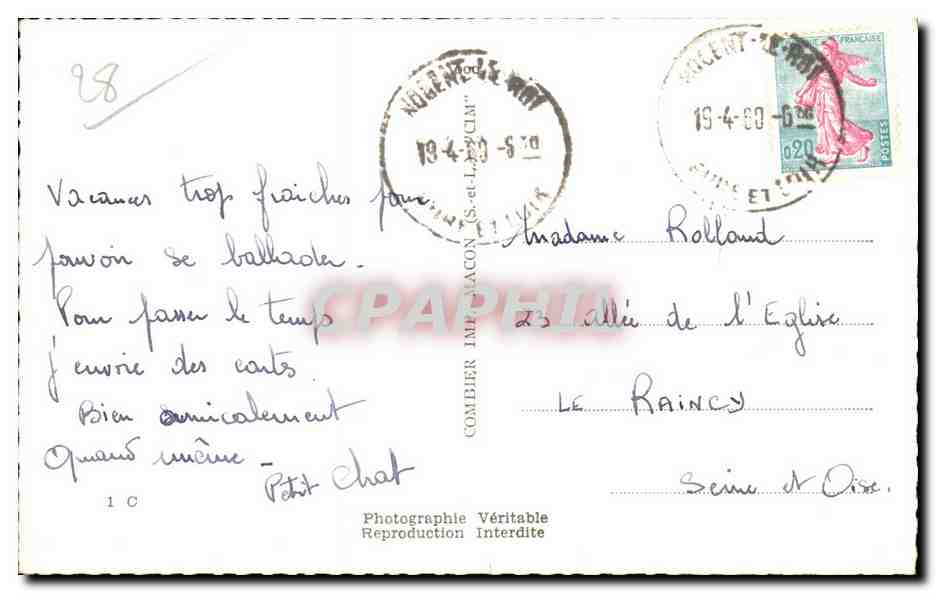 28
NOGENT-LE-ROI
19-4-60 -6 30
EURE ET LOIR
NOGENT-LE-ROI
19-4-60 -6 30
EURE ET LOIR
FRANÇAISE
0,20
POSTES
Vacances trop fraiches pour
pouvoir se ballader.
Pour passer le temps
j'envoie des cartes
Bien amicalement
Quand même -
Petit Chat
1 C
COMBIER IMP. MACON (S.-et-L.) "CIM"
Madame Rolland
23 allée de l'Eglise
LE RAINCY
Seine et Oise.
Photographie Véritable
Reproduction Interdite
CPAPHIL